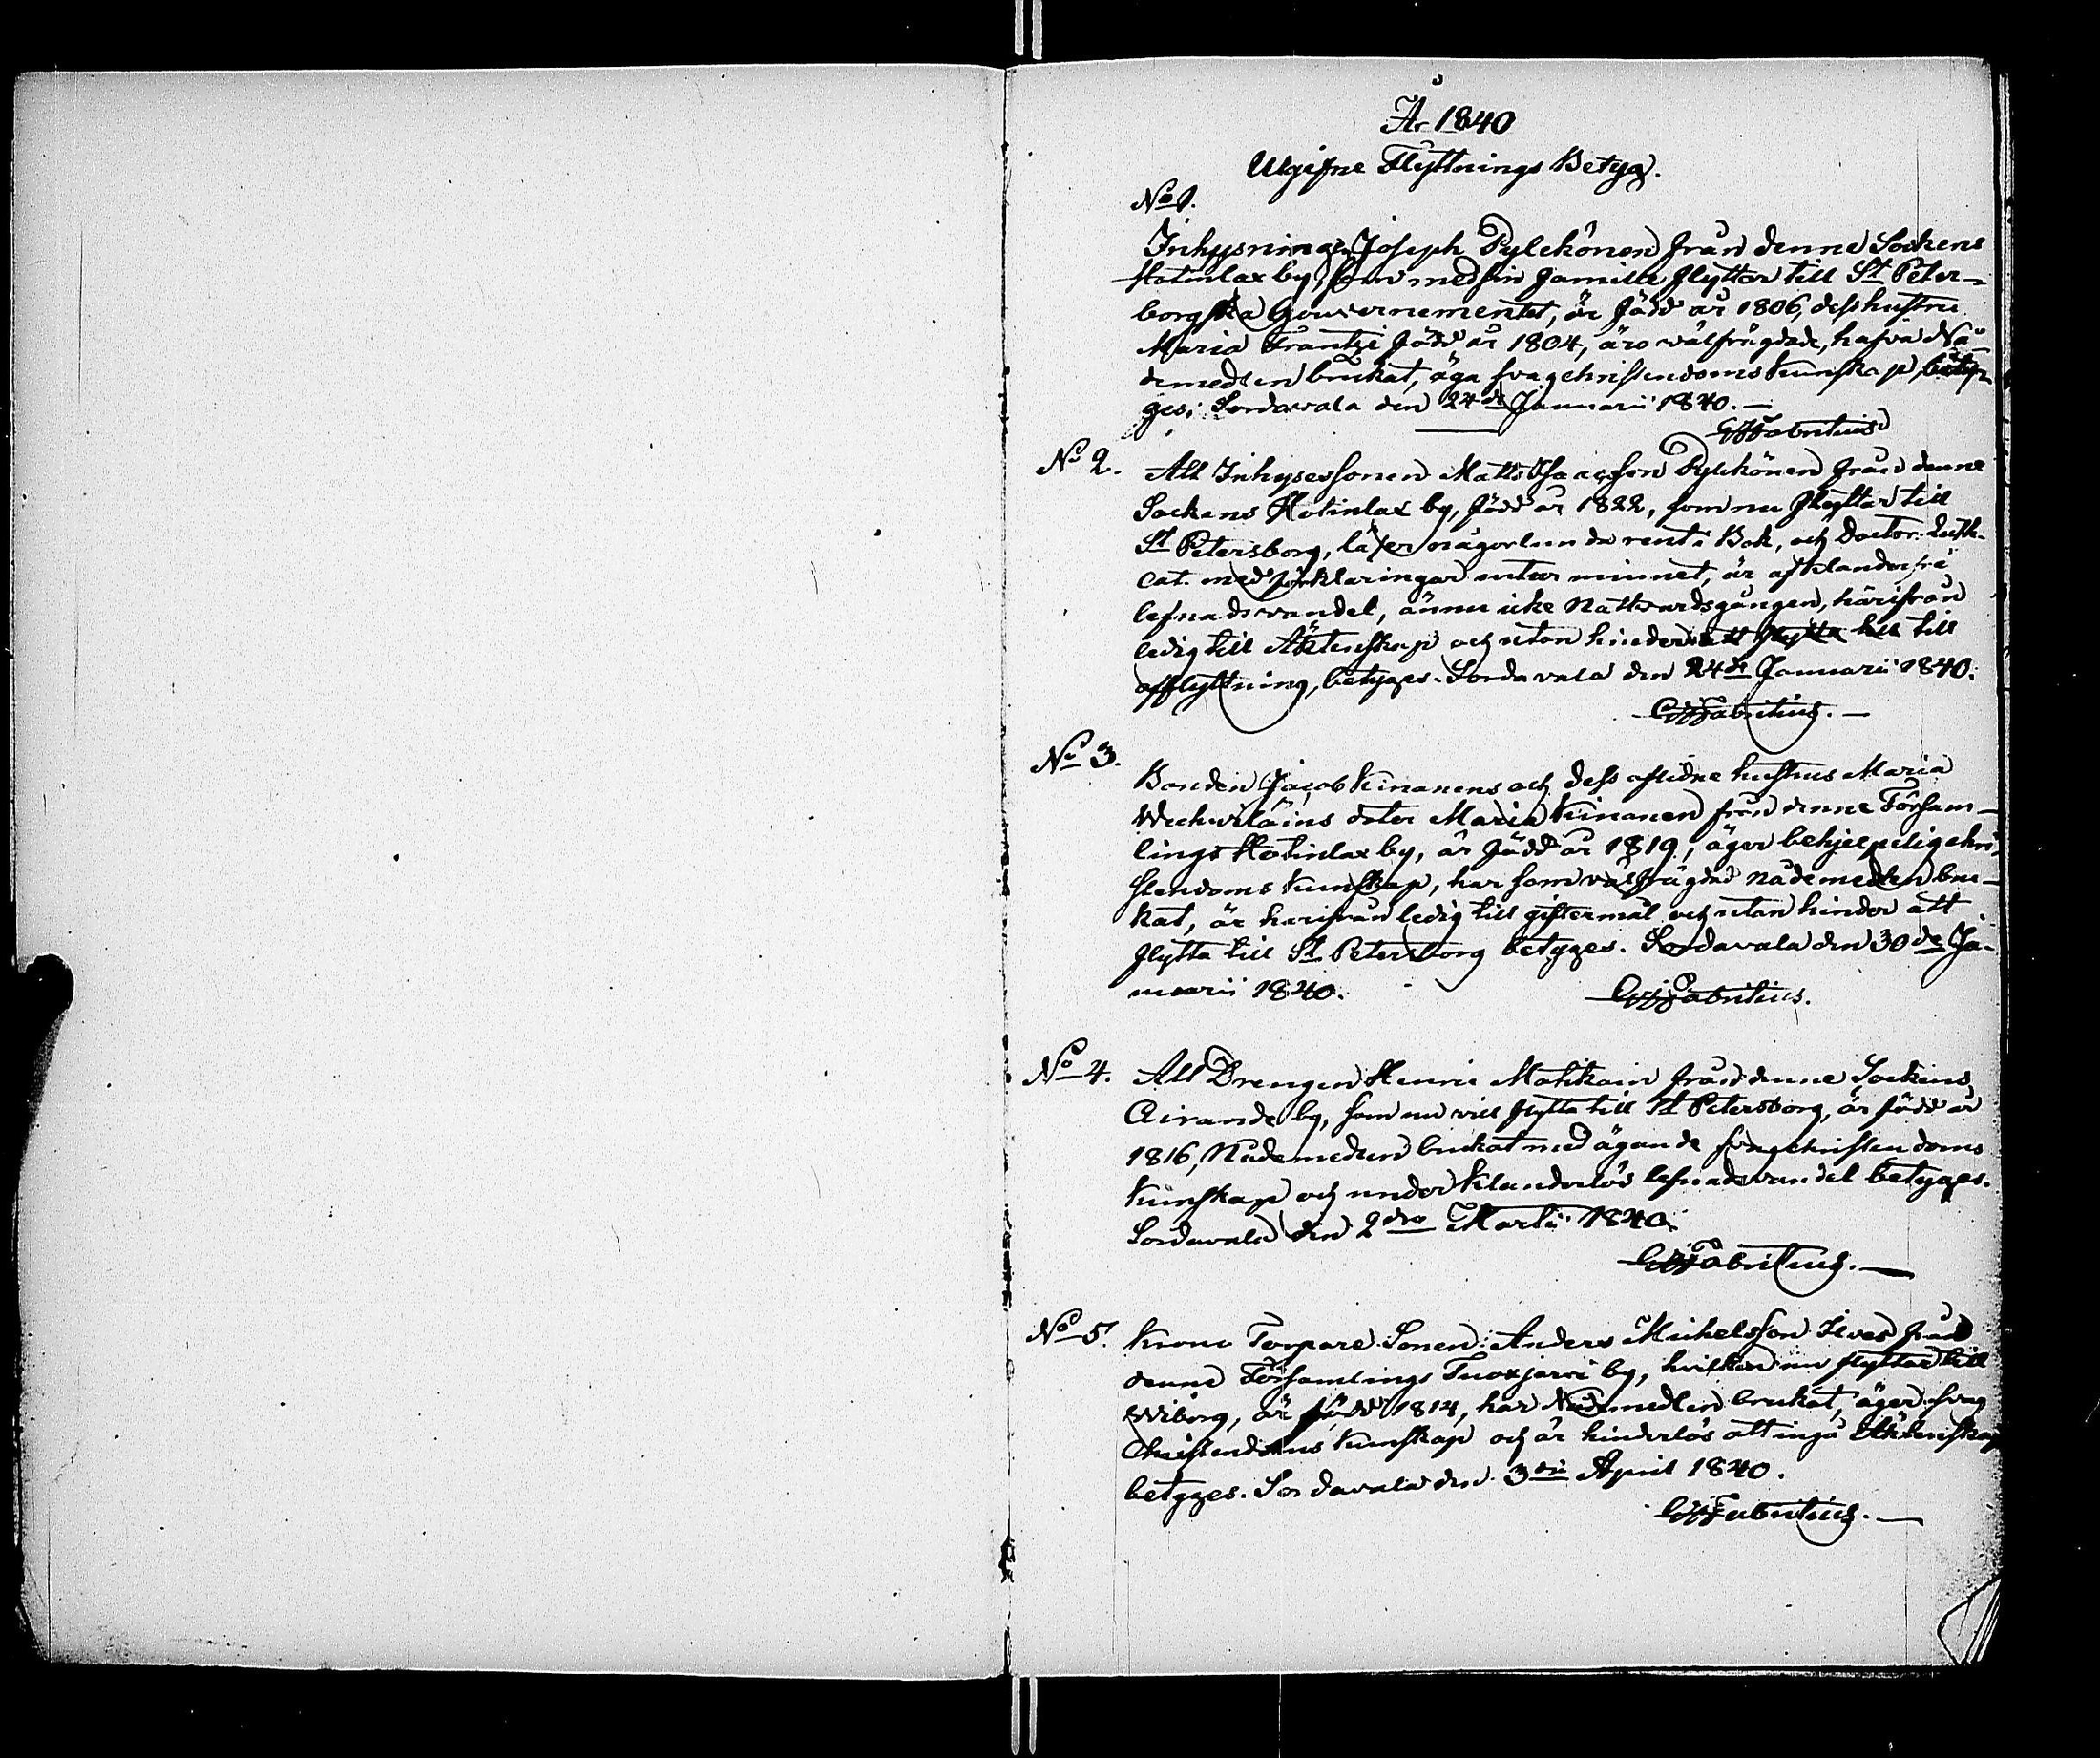 År 1840
Utgifne Flyttnings Betyg.
No 1.
Inhysningen Joseph Pylckönen från denne Sockens
Hotinlax by, som med sin famille flyttar till St Peters-
borgska Gouvernementet, är född år 1806, dess hustru
Maria Frantzi född år 1804, äro välfrägdade, hafva Nå-
demedlen brukat, äga svag christendoms kunskap, bety-
ges; Sordavala den 24de Januarii 1840.—
Fabritius
No 2.
Att Inhysessonen Matts Isaacsson Pylckönen från denne
Sockens Hotinlax by, född år 1822, som nu flyttar till
St Petersborg, läser någorlunda rent i Bok, och Doctor Luth.
cat. med förklaringar utur minnet, är af klanderfri
lefnadsvandel, ännu icke Nattvardsgången, härifrån
ledig till Äktenskap och utan hinder att flytta till till
afflyttning, betyges. Sordavala den 24de Januarii 1840.
Fabritius.—
No 3.
Bonden Jacob Kinanens och dess aflidne hustrus Maria
Wechviläins doter Maria Kinanen från denne Församm-
lings Hotinlax by, är född år 1819, äger behjelpelig chri-
stendoms kunskap, har som välfrägdad nådemedlen bru-
kat, är härifrån ledig till giftermål och utan hinder att
flytta till St Petersborg betyges. Sordavala den 30de Ja-
nuarii 1840.
Fabritius.
No 4.
Att Drengen Henric Matikain från denne Sockens
Airande by, som nu vill flytta till St Petersborg, är född år
1816, Nådemedlen brukat med ägande svag christendoms
kunskap och under klanderlös lefnadsvandel betyges.
Sordavala den 2dra Martii 1840.
Fabritius.—
No 5.
Krono Torpare Sonen Anders Michelsson Ilves från
denne Församlings Tuoxjärvi by, hvilken nu flyttar till
Wiborg, är född 1814, har Nådemedlen brukat, äger svag
Christendoms kunskap och är hinderlös att ingå Äktenskap
betyges. Sordavala den 3dje April 1840.
Fabritius.—